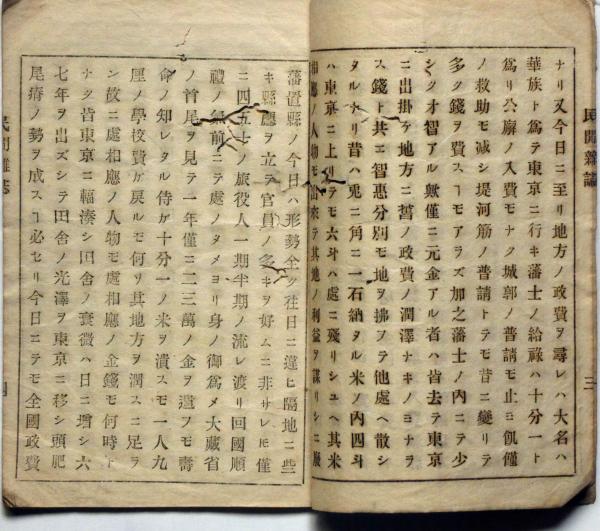 民間雜誌
三
ナリ又今日ニ至リ地方ノ政費ヲ尋レハ大名ハ
華族ト爲テ東京ニ行キ藩士ノ給祿ハ十分一ト
爲リ公廨ノ入費モナク城郭ノ普請モ止ミ飢饉
ノ救助モ减シ堤河筋ノ普請トテモ昔ニ變リテ
多ク錢ヲ費スヿモアラズ加之藩士ノ内ニテ少
シク才智アル歟僅ニ元金アル者ハ皆去テ東京
ニ出掛テ地方ニ舊ノ政費ノ潤澤ナキノミナラ
ス錢ト共ニ智惠分別モ地ヲ拂フテ他處ヘ散シ
タルナリ昔ハ兎ニ角ニ一石納タル米ノ内四斗
ハ東京ニ上リテモ六斗ハ處ニ殘リシユヘ其米
相應ノ人物モ出來テ其地ノ利益ヲ謀リシニ廢
藩置縣ノ今日ハ形勢全ク徃日ニ違ヒ隔地ニ些
キ縣廳ヲ立テ官員ノ多キヲ好ムニ非サレ𪜈僅
ニ四五十ノ旅役人一期半期ノ流レ渡リ回國順
禮ノ 前ニテ處ノタメヨリ身ノ御爲メ大藏省
ノ首尾ヲ見テ一年僅ニ二三萬ノ金ヲ遣フモ壽
命ノ知レタル侍ガ十分一ノ米ヲ潰スモ一人九
厘ノ學校費ガ戻ルモ何ヲ其地方ヲ潤スニ足ラ
ン故ニ處相應ノ人物モ處相應ノ金錢モ何時ト
ナク皆東京ニ輻湊シ田舍ノ衰微ハ日ニ增シ六
七年ヲ出ズシテ田舍ノ光澤ヲ東京ニ移シ頭肥
尾瘠ノ勢ヲ成スヿ必セリ今日ニテモ全國政費
民間雜誌
四